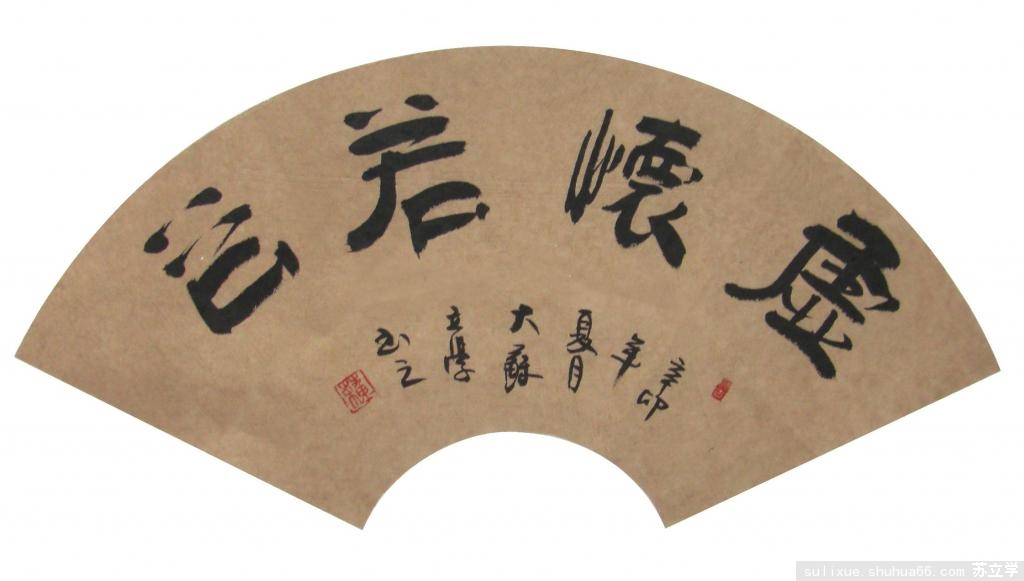 虛懷若谷
辛卯
年
夏月
大蘇
立學
书之
sulixue.shuhua66.com 苏立学